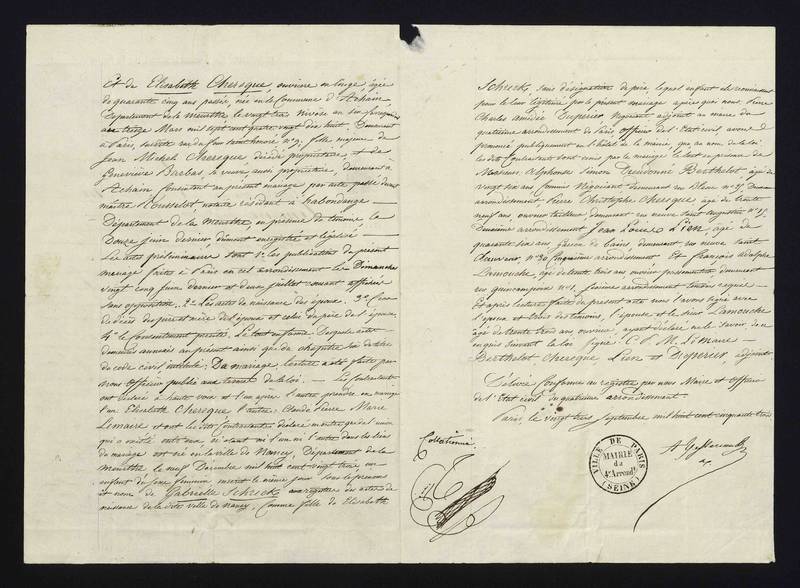 Et de Elisabeth Cheseque, ouvrière en linge, âgée
de quarante cinq ans passés, née en la Commune d'Achain
Département de la meurthe le vingt trois nivôse an
treize Mars mil sept cent quatre vingt dix huit. Demeurant
à Paris, susdite rue du four Saint honoré n° 9. fille majeure de
Jean Michel Cheseque, décédé propriétaire et de
Geneviève Barbas, sa veuve, aussi propriétaire, demeurant à
Achain consentant au présent mariage par acte passé devant
maître notaire résidant à habondange
Département de la Meurthe, en présence de témoins le
Douze Juin dernier dûment enregistré et légalisé
Les actes préliminaires sont 1° les publications du présent
mariage faites à Paris en cet arrondissement les Dimanches
vingt cinq Juin dernier et deux juillet courant affichées
sans opposition. 2° Les actes de naissance des époux. 3° Ceux
de décès des père et mère de l'époux et celui du père de l'épouse.
4° le Consentement précité. Le tout en forme Desquels actes
demeurés annexés au présent ainsi que du chapitre six du titre
du code civil, intitulé: Du mariage, lecture a été faite par
nous officier public aux termes de la loi. Les Contractants
ont déclaré à haute voix et l'un après l'autre prendre en mariage
l'un Elisabeth Cheseque l'autre: Claude Pierre Marie
Lemaire et ont les dits Contractants déclaré
qu'il existe entre eux,
de mariage est né en la ville de Nancy, Département de la
meurthe le neuf Décembre mil huit cent vingt trois, un
enfant du sexe féminin inscrit le même jour sous les prénoms
et nom de Gabrielle Schreck aux registres des actes de
naissance de la dite ville de Nancy. Comme fille de Elisabeth
Schreck, sans désignation de père, lequel enfant ils reconnaissent
pour le leur légitime par le présent mariage après que nous Pierre
Charles Amédée Duperier Négociant adjoint au maire du
quatrième arrondissement de Paris officier de l'Etat civil, avons
prononcé publiquement en l'hôtel de la mairie, que au nom de la loi
les dits Contractants sont unis par le mariage le tout en présence de
Messieurs Alphonse Simon Dieudonné Berthelot, âgé de
vingt six ans Commis Négociant demeurant rue
arrondissement Pierre Christophe Cheseque, âgé de trente
neuf ans, ouvrier tailleur demeurant rue neuve Saint augustin n° 9.
Deuxième arrondissement Jean Louis Lien, âgé de
quarante six ans garçon de bains, demeurant rue neuve Saint
Sauveur n° 30 Cinquième arrondissement Et François Adolphe
Lamouche, âgé de trente trois ans ouvrier demeurant
rue quincampoix n° 1. Sixième arrondissement témoins requis
Et après lecture faite du présent acte nous l'avons signé avec
l'époux et trois des témoins, l'épouse et le sieur Lamouche
âgé de trente trois ans ouvrier, ayant déclaré ne le savoir de ce
requis suivant la loi. Signé: C. P. M. Lemaire
Berthelot, Cheseque Lien et Duperier adjoint.
Délivré Conforme au registre par nous Maire et officier
de l'Etat Civil du quatrième arrondissement.
Paris, le vingt trois Septembre mil huit cent cinquante trois
Collationné.
VILLE DE PARIS
MAIRIE
du
4e Arrondt
(SEINE)